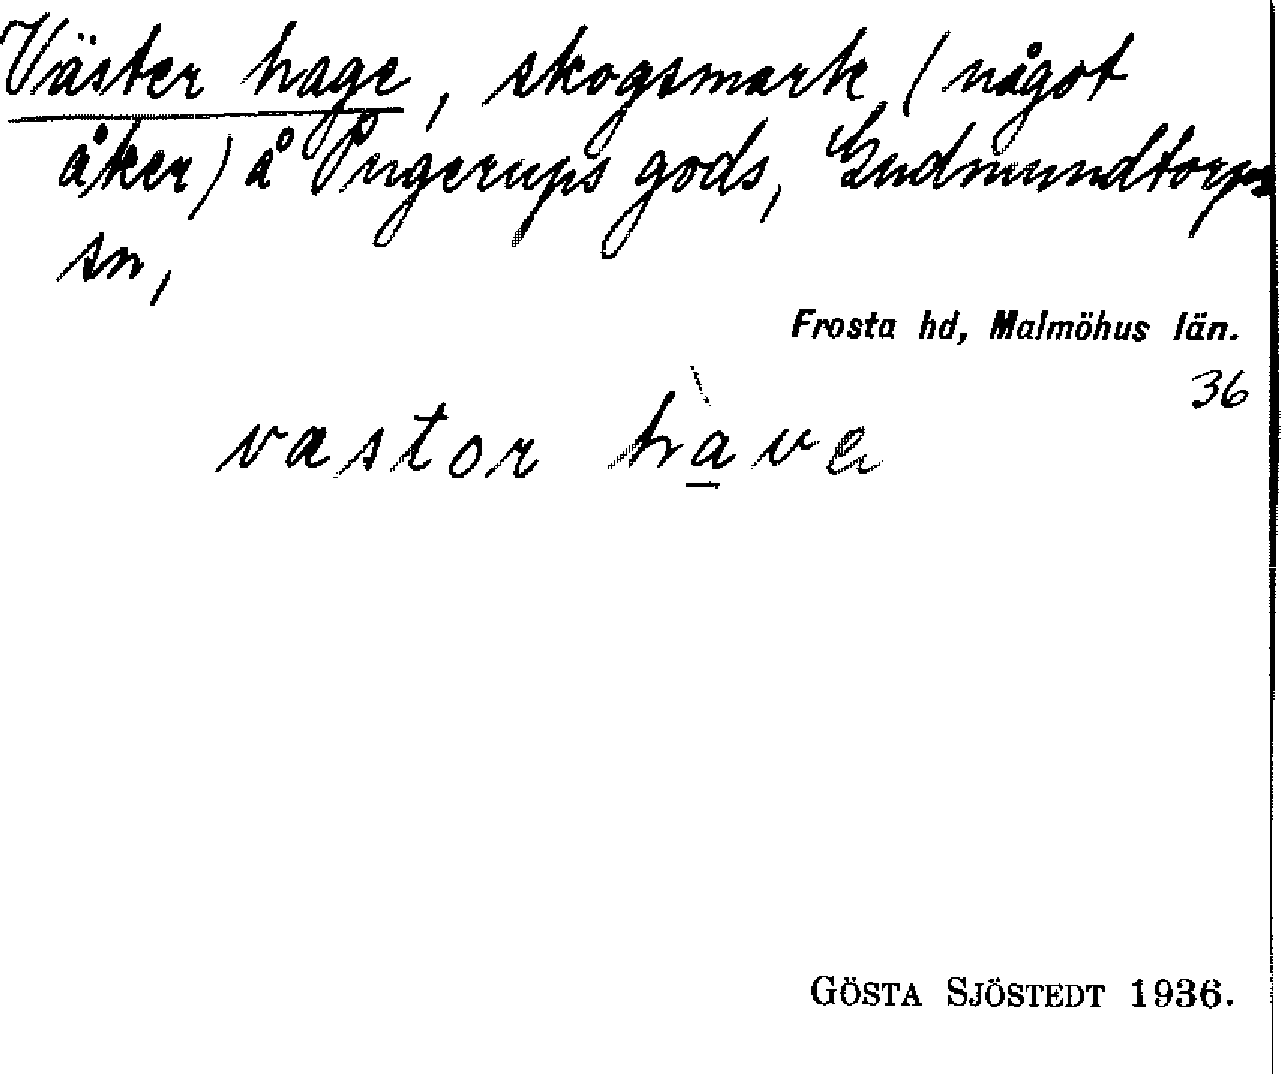 Väster hage, skogsmark (något
åker) å Pugerups gods, Gudmundtorps
sn,
Frosta hd, Malmöhus län.
36
vastor havɐ
GÖSTA SJÖSTEDT 1936.